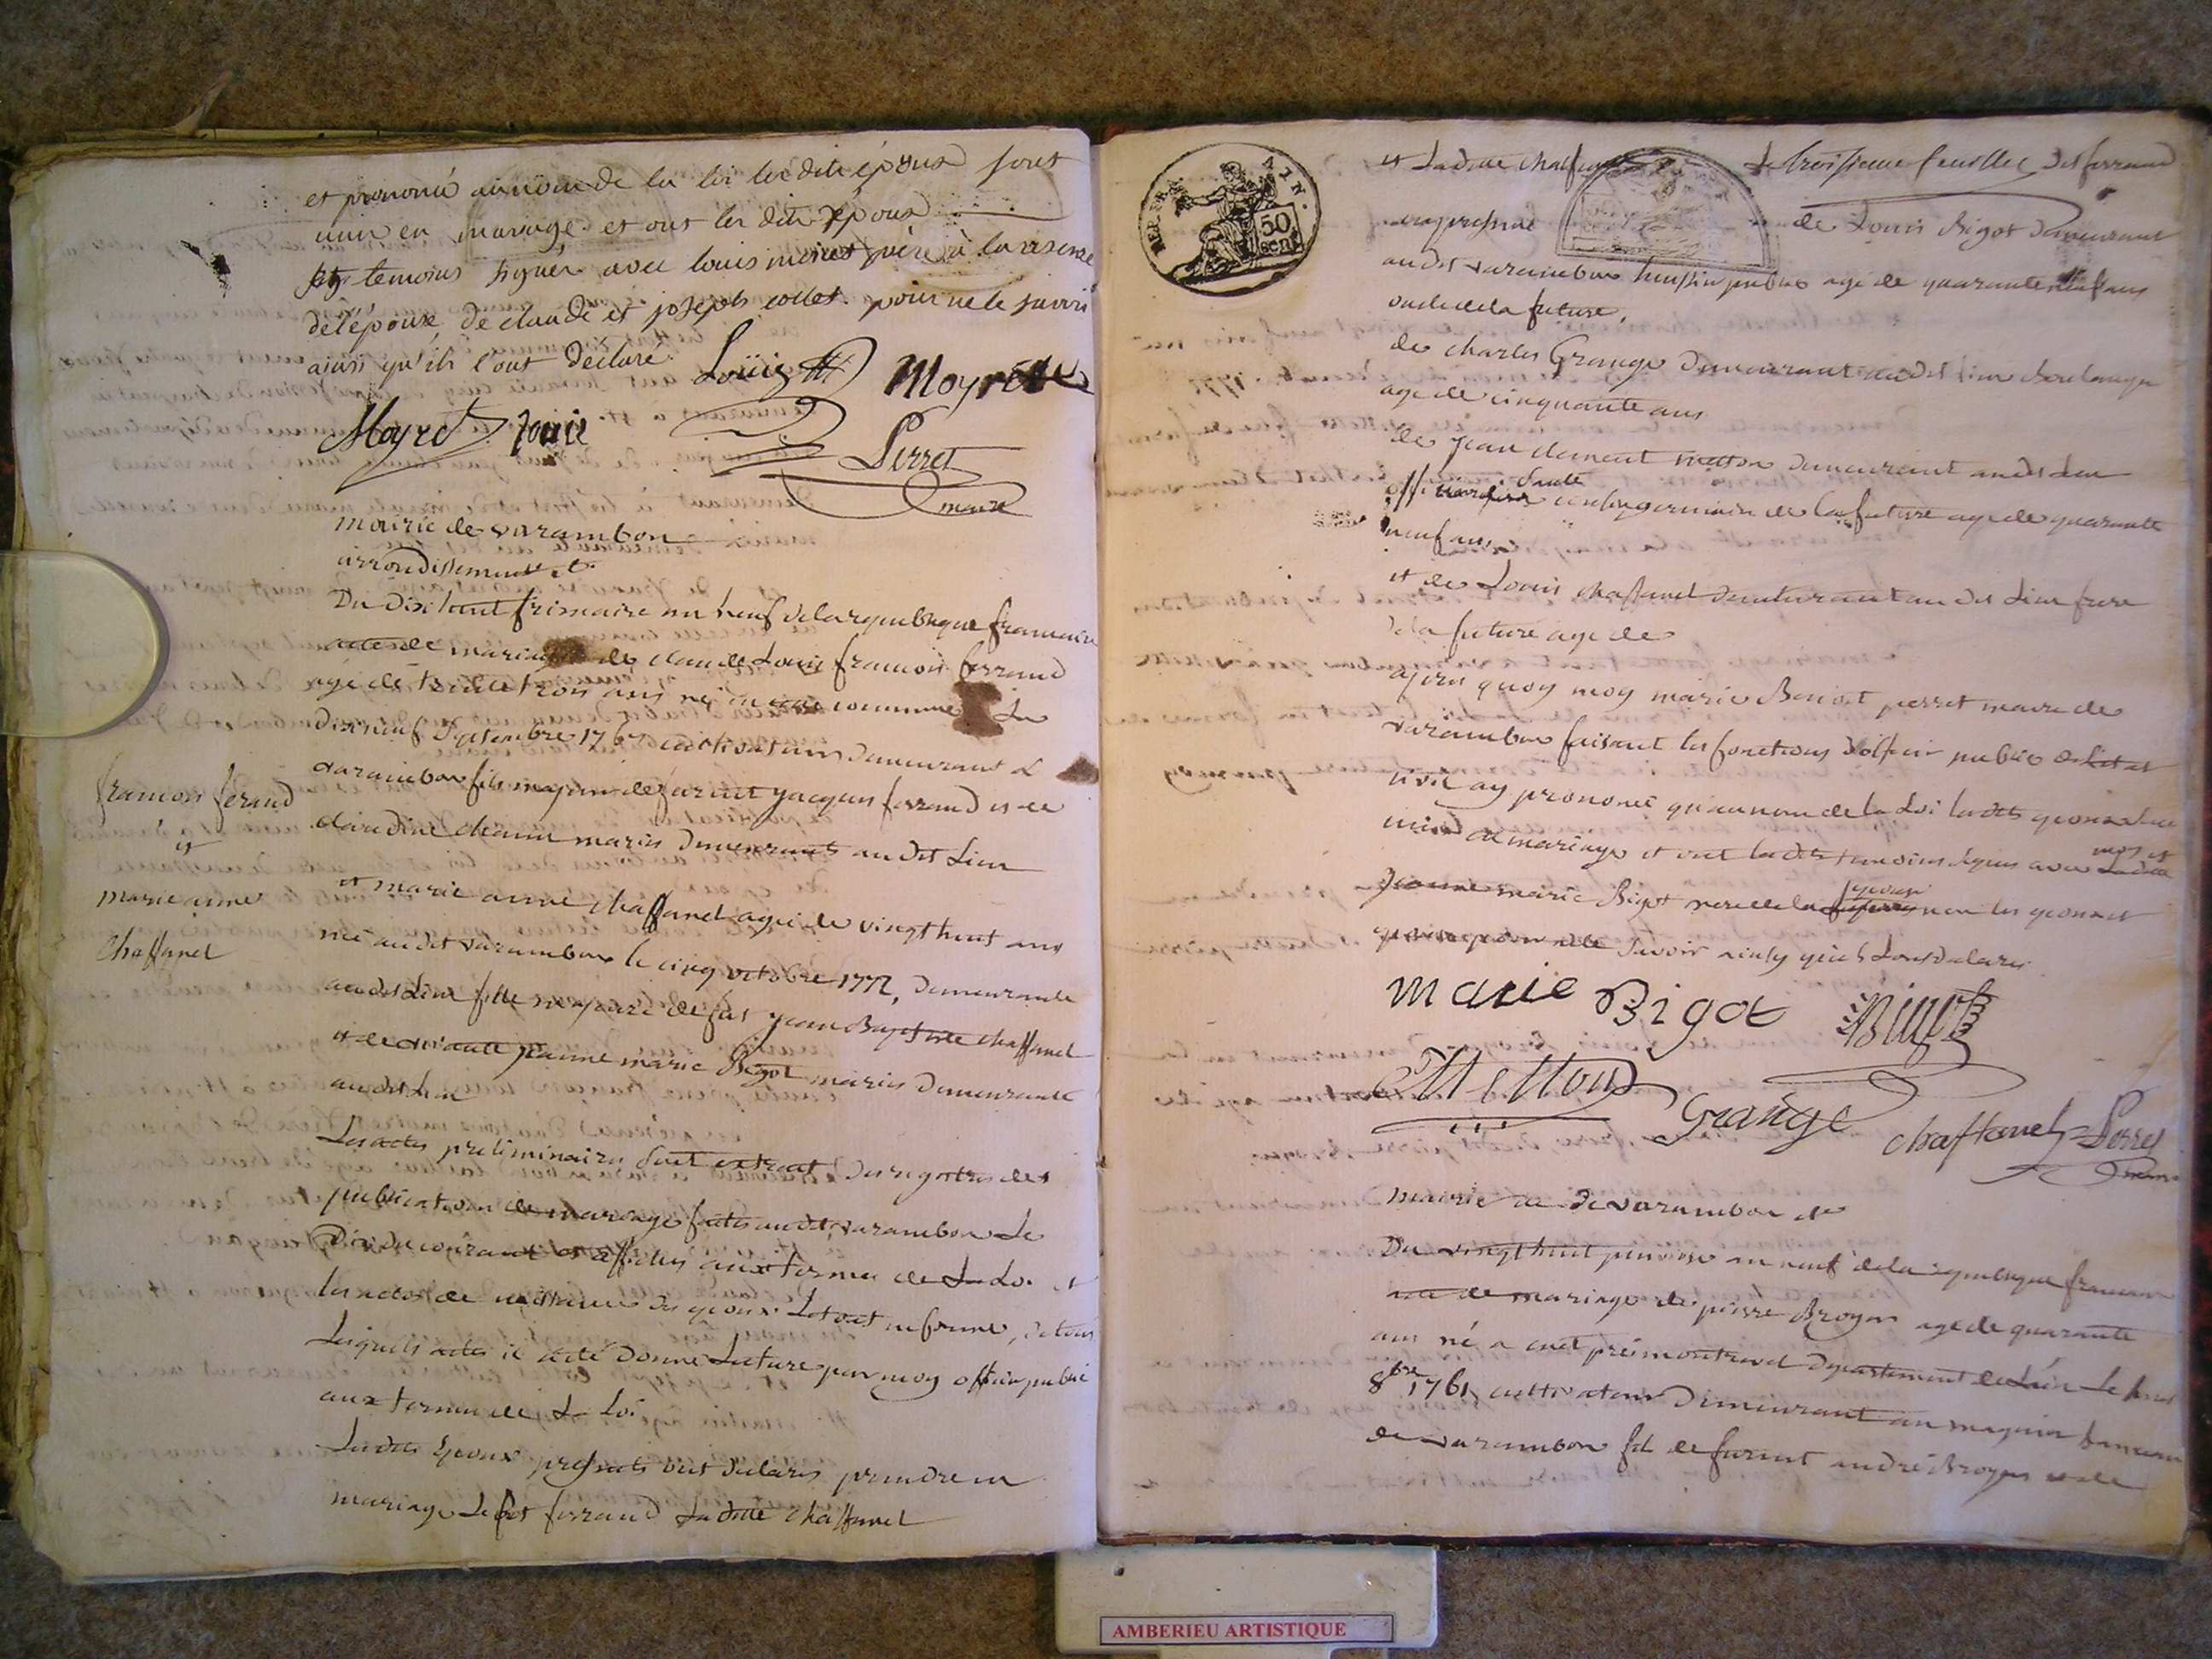 et prononcé au nom de la loi les dits époux sont
unis en mariage et ont les dits époux
temoins signés avec louis père à la reserve
de l'épouse, de claude et joseph collet pour ne le savoir
ainsi qu'ils l'ont declaré
Louis Moyret
Moyret louis
Perret
maire
mairie de varambon
arrondissement &
Du dixhuit frimaire an neuf de la republique francaise
acte de mariage de claude Louis francois ferrand
agé de trente trois ans né en commune Le
dixneuf Septembre 1767 cultivateur demeurant a
varambon fils majeur de furent jacques ferrand et de
claudine mariés demeurants au dit Lieu
francois ferand
et
marie anne
Chaffanel
et marie anne chaffanel agée de vingt huit ans
née au dit varambon le cinq octobre 1772, demeurante
au dit Lieu fille majeure de fut jean Baptiste chaffanel
et de vivante jeanne marie Bigot mariés demeurante
au dit Lieu
Les actes preliminaires sont extrait des registres des
publications de mariage faites au dit varambon Le
Dix du courant et affichés aux termes de La Loi et
les actes de naissance des epoux Le tout en forme, de tous
Lesquels actes il a été donné Lecture par moy officier public
aux termes de La Loi
Les dits Epoux presents ont declarés prendre en
mariage Le dit ferrand La ditte chaffanel
AIN.
50
cent
et La ditte chaffanel Le dit ferrand
troisieme feuillet
en presence de Louis Bigot demeurant
au dit varambon huissier public agé de quarante neuf ans
oncle de la future,
de charles Grange demeurant au dit Lieu Boulanger
agé de cinquante ans
de jean clement metton demeurant au dit Lieu
officier de santé cousin germain de la future agé de quarante
neuf ans
et de Louis chaffanel demeurant au dit Lieu frere
de la future agé de
apres quoy moy marie Benoit perret maire de
varambon faisant les fonctions d'officier public de L'etat
civil ay prononcé qu'au nom de la Loi les dits epoux
unis en mariage et ont les dits temoins signés avec moy et La ditte
jeanne marie Bigot mere de la epouse non les epoux
savoir ainsy qu'ils L'ont declarés
marie Bigot Bigot
Metton
Grange
chaffanel Perret
maire
mairie de varambon &
Du vingt huit pluviose an neuf de la republique francaise
acte de mariage de pierre Broyer agé de quarante
ans né a cuet pres montrevel departement de L'ain Le
8bre 1761 cultivateur demeurant au
de varambon fils de furent andré Broyer et de
AMBERIEU ARTISTIQUE